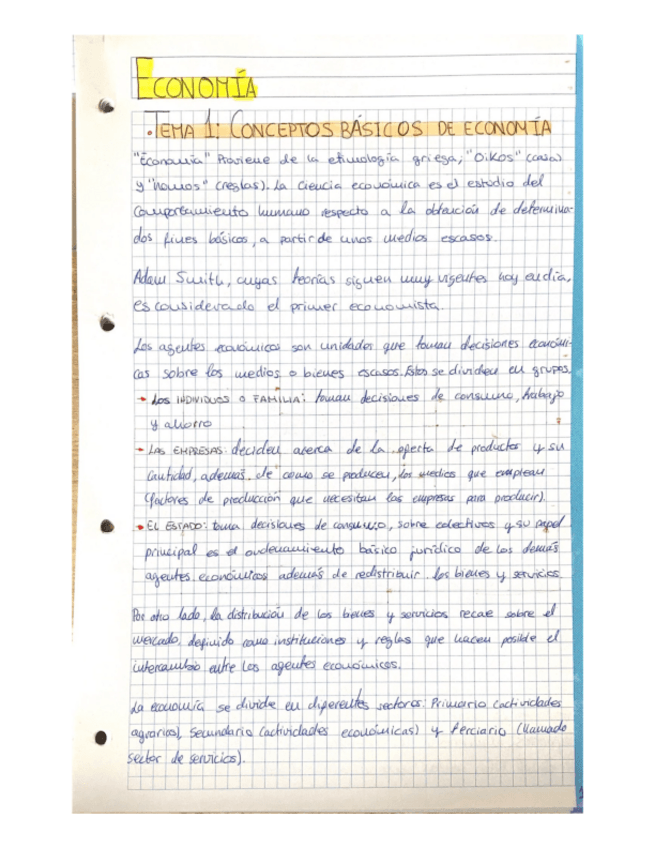 ECONOMÍA
• TEMA 1: CONCEPTOS BÁSICOS DE ECONOMÍA
"Economía" Proviene de la etimología griega, "Oikos" (casa)
y "nomos" (reglas). La ciencia económica es el estudio del
comportamiento humano respecto a la obtención de determina-
dos fines básicos, a partir de unos medios escasos.
Adam Smith, cuyas teorías siguen muy vigentes hoy en día,
es considerado el primer economista.
Los agentes económicos son unidades que toman decisiones económi-
cas sobre los medios o bienes escasos. Estos se dividen en grupos.
→ LOS INDIVIDUOS O FAMILIA: toman decisiones de consumo, trabajo
y ahorro
→ LAS EMPRESAS: deciden acerca de la oferta de productos y su
cantidad, además de como se producen, los medios que emplean
(factores de producción que necesitan las empresas para producir).
→ EL ESTADO: toma decisiones de consumo, sobre colectivos y su papel
principal es el ordenamiento básico jurídico de los demás
agentes económicos además de redistribuir los bienes y servicios
Por otro lado, la distribución de los bienes y servicios recae sobre el
mercado, definido como instituciones y reglas que hacen posible el
intercambio entre los agentes económicos.
La economía se divide en diferentes sectores: Primario (actividades
agrarias), Secundario (actividades económicas) y Terciario (llamado
sector de servicios).
1